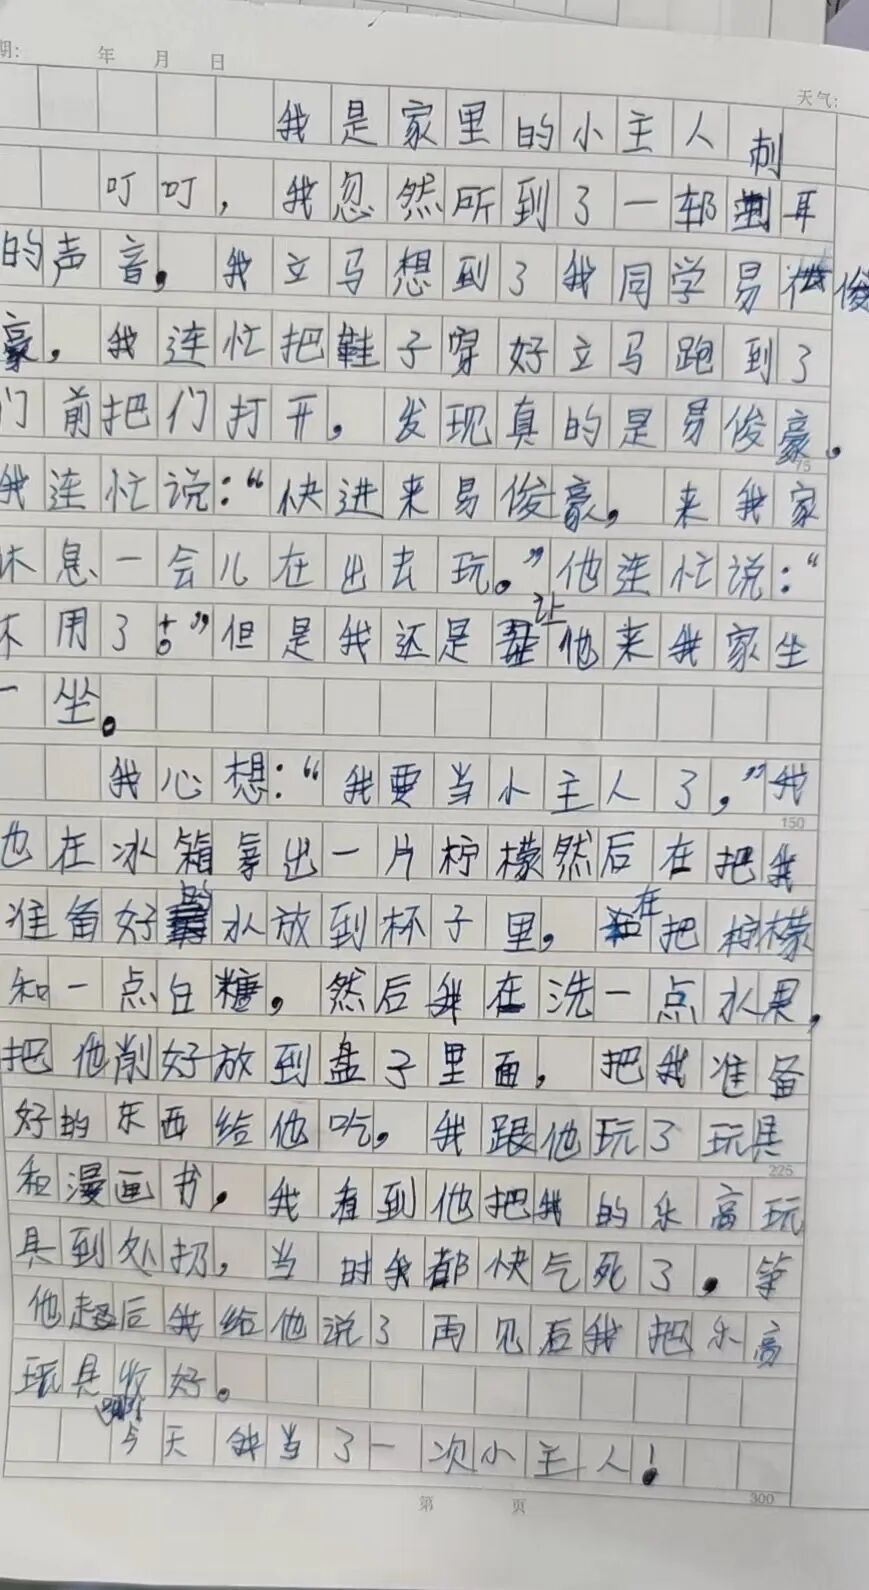 期: 年 月 日
天气:
我是家里的小主人
刺
叮叮，我忽然所到了一郓耳
的声音。我立马想到了我同学易俊
豪，我连忙把鞋子穿好立马跑到了
门前把们打开。发现真的是易俊豪。
75
我连忙说:“快进来易俊豪，来我家
休息一会儿在出去玩。”他连忙说:“
让
不用了。”但是我还是他来我家坐
一坐。
我心想:“我要当小主人了，”我
150
也在冰箱拿出一片柠檬然后在把我
的
在
准备好水放到杯子里，把柠檬
和一点白糖，然后我在洗一点水果，
把他削好放到盘子里面，把我准备
好的东西给他吃。我跟他玩了玩具
225
和漫画书。我看到他把我的乐高玩
具到处扔，当时我都快气死了。等
他后我给他说了再见后我把乐高
玩具收好。
今天我当了一次小主人！
第 页
300